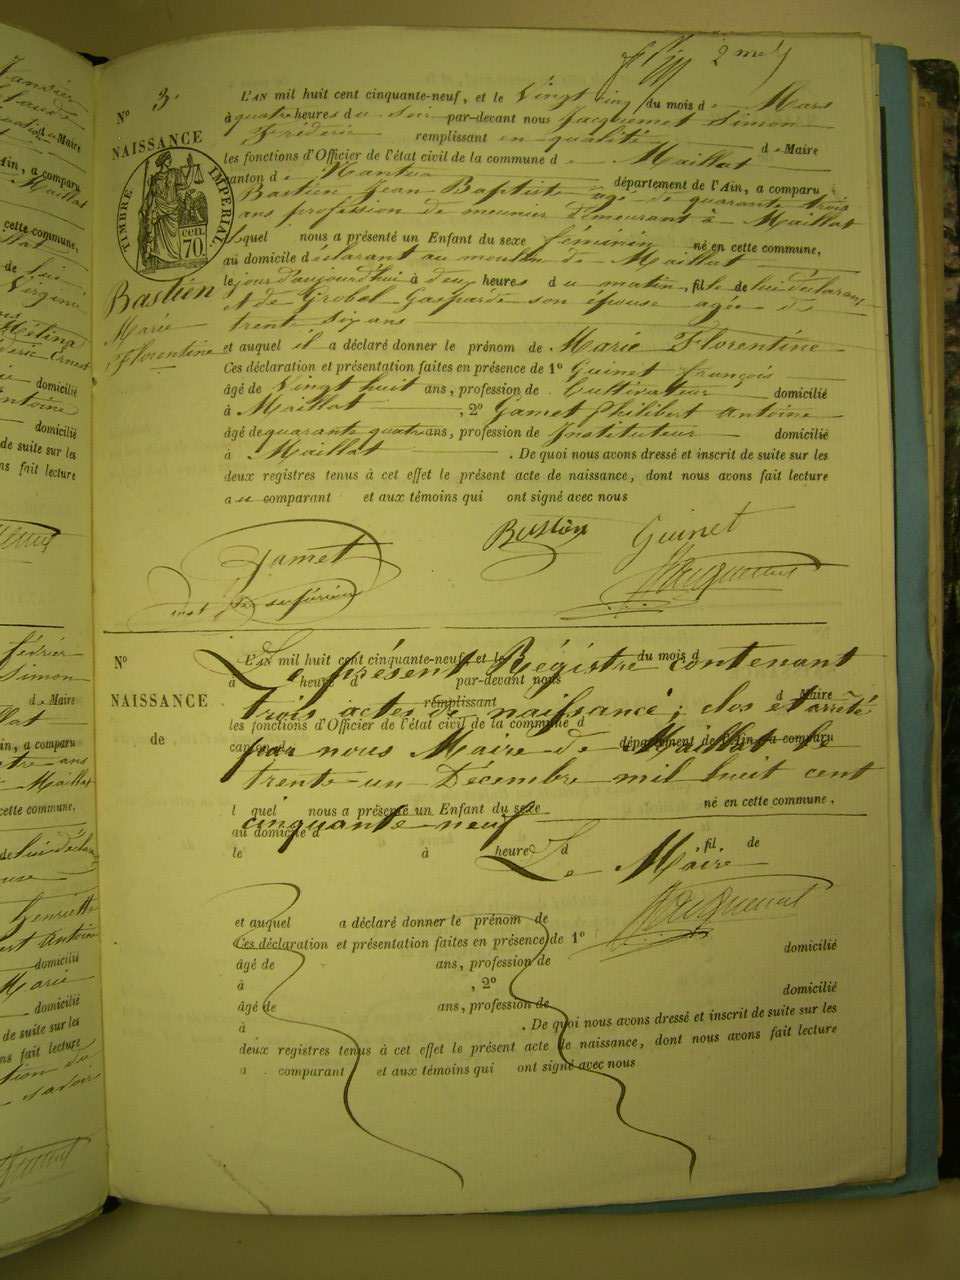 N° 3.
NAISSANCE
TIMBRE IMPÉRIAL.
70 cen.
Bastien
Marie
Florentine
L'AN mil huit cent cinquante-neuf, et le Vingt cinq du mois de Mars
à quatre heures du soir par-devant nous Jacquemet Simon
Frédéric remplissant en qualité de Maire
les fonctions d'Officier de l'état civil de la commune de Maillat
canton de Nantua département de l'Ain, a comparu
Bastien Jean Baptiste âgé de quarante trois
ans profession de meunier demeurant à Maillat
lequel nous a présenté un Enfant du sexe féminin né en cette commune,
au domicile déclarant au moulin de Maillat
le jour d'aujourd'hui à deux heures du matin, fille de lui déclarant
et de Grobat Gasparde son épouse agée de
trente six ans
et auquel il a déclaré donner le prénom de Marie Florentine
Ces déclaration et présentation faites en présence de 1° Guinet françois
âgé de Vingt huit ans, profession de Cultivateur domicilié
à Maillat, 2° Gamet Philibert Antoine
âgé de quarante quatre ans, profession de Instituteur domicilié
à Maillat. De quoi nous avons dressé et inscrit de suite sur les
deux registres tenus à cet effet le présent acte de naissance, dont nous avons fait lecture
au comparant et aux témoins qui ont signé avec nous
Bastien Guinet
Gamet Jacquemet
N° L'AN mil huit cent cinquante-neuf, et le du mois d
Le présent Régistre contenant
à heure d par-devant nous
NAISSANCE remplissant d Maire
trois actes de naissance; clos et arrêté
les fonctions d'Officier de l'état civil de la commune d
de canton d département de l'Ain, a comparu
par nous Maire de Maillat le
trente-un Décembre mil huit cent
l quel nous a présenté un Enfant du sexe né en cette commune,
cinquante neuf
au domicile d
le à heure d fil de
Le Maire
Jacquemet
et auquel a déclaré donner le prénom de
Ces déclaration et présentation faites en présence de 1°
domicilié
âgé de ans, profession de
à , 2° domicilié
âgé de ans, profession de
à . De quoi nous avons dressé et inscrit de suite sur les
deux registres tenus à cet effet le présent acte de naissance, dont nous avons fait lecture
a comparant et aux témoins qui ont signé avec nous